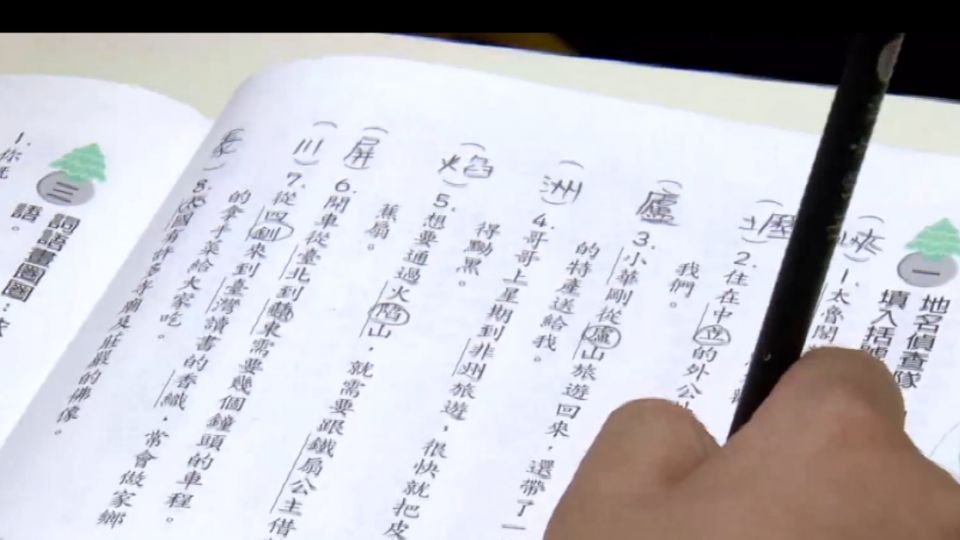 一
地名偵查隊
填入括
(峽)
1.太魯閣
2.住在中立的外公
我們。
(廬)
3.小華剛從廬山旅遊回來，還帶了一
的特產送給我。
(洲)
4.哥哥上星期到非州旅遊，很快就把皮
得黝黑。
(焰)
5.想要通過火陷山，就需要跟鐵扇公主借
蕉扇。
(屏)
6.開車從臺北到東需要幾個鐘頭的車程。
(川)
7.從四釧來到臺灣讀書的香織，常會做家鄉
的拿手菜給大家吃。
8.國有許多寺廟及莊嚴的佛像。
三
詞語畫圈圈：
語。
1.你